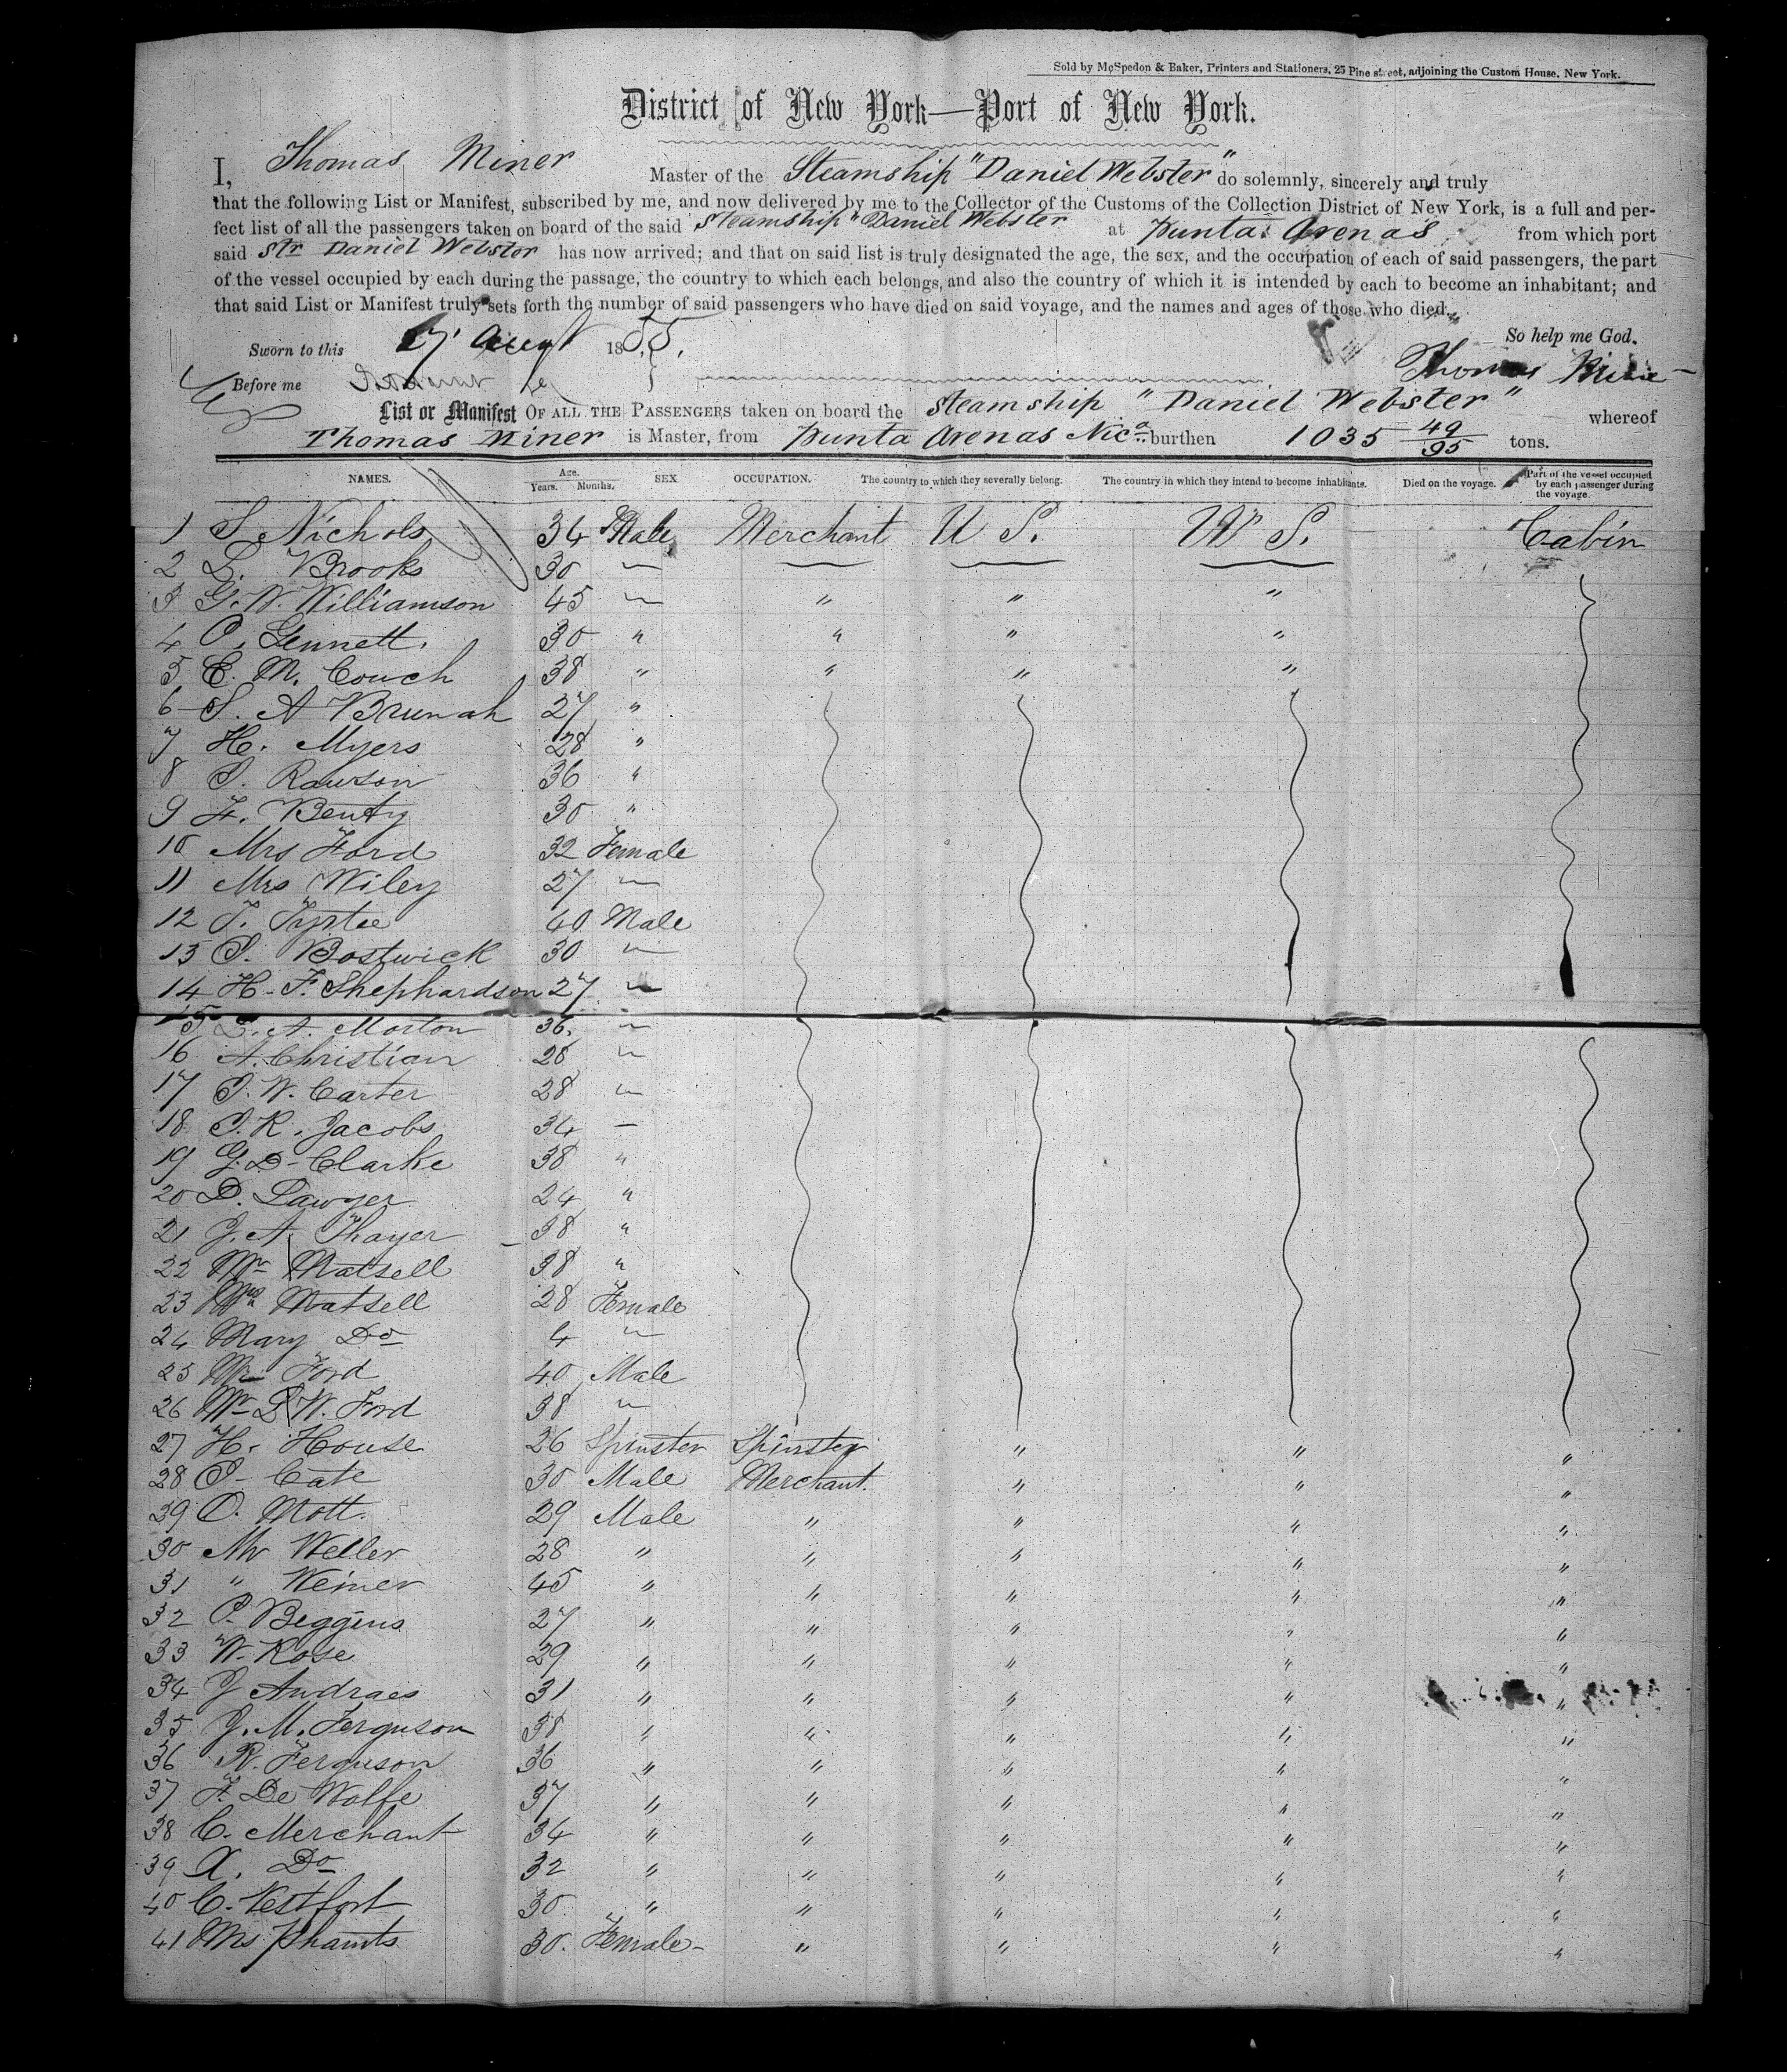 Sold by McSpedon & Baker, Printers and Stationers, 25 Pine street, adjoining the Custom House, New York.
District of New York—Port of New York.
I, Thomas Miner Master of the Steamship "Daniel Webster" do solemnly, sincerely and truly
that the following List or Manifest, subscribed by me, and now delivered by me to the Collector of the Customs of the Collection District of New York, is a full and per-
fect list of all the passengers taken on board of the said Steamship "Daniel Webster at Punta Arenas from which port
said Str Daniel Webster has now arrived; and that on said list is truly designated the age, the sex, and the occupation of each of said passengers, the part
of the vessel occupied by each during the passage, the country to which each belongs, and also the country of which it is intended by each to become an inhabitant; and
that said List or Manifest truly sets forth the number of said passengers who have died on said voyage, and the names and ages of those who died.
So help me God.
Sworn to this 27 August 1855.
Thomas Miner
Before me
List or Manifest OF ALL THE PASSENGERS taken on board the Steamship "Daniel Webster" whereof
Thomas Miner is Master, from Punta Arenas Nica burthen 1035 49/95 tons.
NAMES. Age. Years. Months. SEX OCCUPATION. The country to which they severally belong. The country in which they intend to become inhabitants. Died on the voyage. Part of the vessel occupied by each passenger during the voyage.
1 S. Nichols 34 Male Merchant U S. U S. Cabin
2 L. Brooks 30
3 G. W. Williamson 45 " " "
4 O. Gennett. 30 " " " "
5 E. M. Couch 38 " " " "
6 S. A Brunah 27 "
7 H. Myers 28 "
8 S. Rawson 36 "
9 F. Benty 30 "
10 Mrs Ford 32 Female
11 Mrs Wiley 27
12 T. Tyrtee 40 Male
13 S. Bostwick 30
14 H. F. Shephardson 27
15 L. A. Morton 36.
16 A. Christian 28
17 S. W. Carter 28
18 S. K. Jacobs 34
19 G. D. Clarke 38 "
20 D. Sawyer 24 "
21 J. A Thayer 38 "
22 Mr Matsell 38 "
23 Mrs Matsell 28 Female
24 Mary Do 4
25 Mr Ford 40 Male
26 Mr L W. Ford 38
27 H. House 26 Spinster Spinster " " "
28 S. Cate 30 Male Merchant. " " "
29 O. Mott. 29 Male " " " "
30 Mr Weller 28 " " " " "
31 " Weiner 45 " " " " "
32 P. Beggins 27 " " " " "
33 W. Rose 29 " " " " "
34 J Andraes 31 " " " " "
35 J. M. Ferguson 38 " " " " "
36 R. Ferguson 36 " " " " "
37 F. De Wolfe 37 " " " " "
38 C. Merchant 34 " " " " "
39 X. Do 32 " " " " "
40 C. Vestfort 30 " " " " "
41 Mrs Phamts 30. Female " " " "